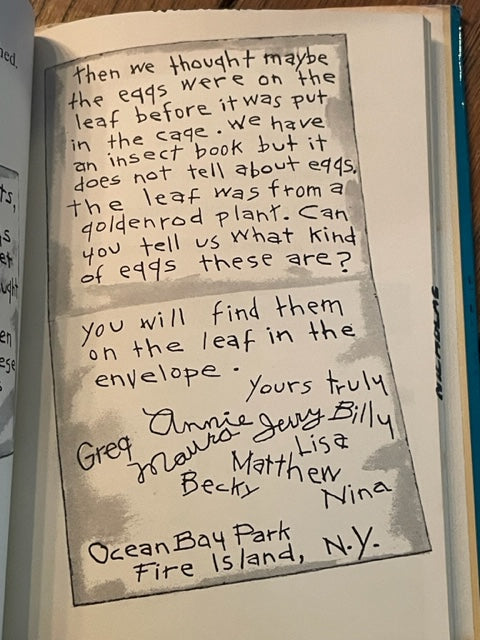 then we thought maybe
the eggs were on the
leaf before it was put
in the cage. We have
an insect book but it
does not tell about eggs.
the leaf was from a
goldenrod plant. Can
you tell us what kind
of eggs these are?
you will find them
on the leaf in the
envelope.
Yours truly
Greg Annie Jerry Billy
Maura Lisa
Matthew
Becky
Nina
Ocean Bay Park
Fire Island, N.Y.